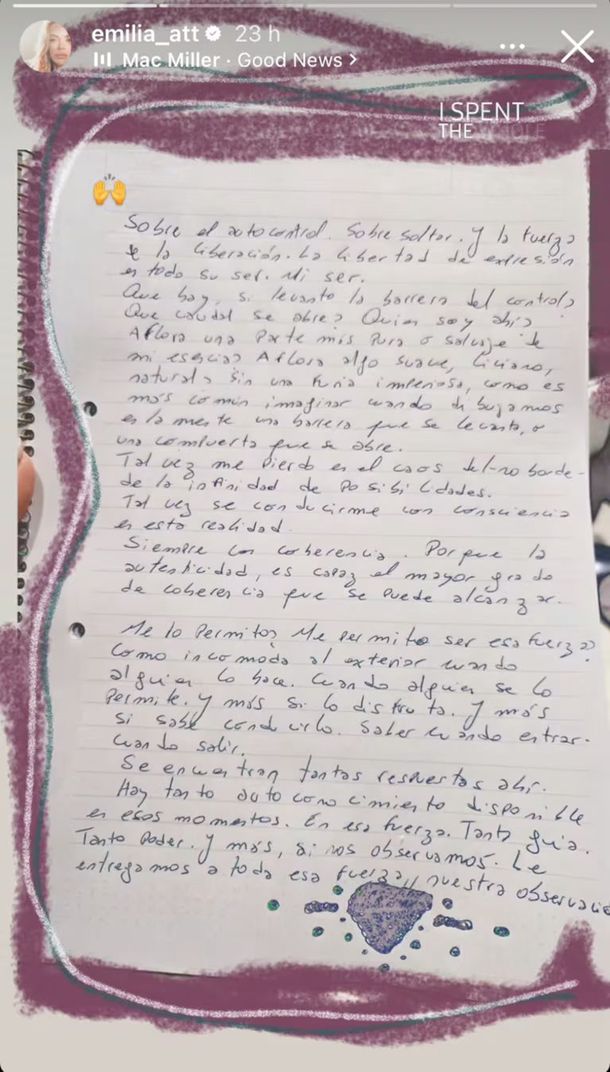 emilia_att 23 h
Mac Miller · Good News >
I SPENT
THE WHOLE
Sobre el autocontrol. Sobre soltar. Y la fuerza
de la liberación. La libertad de expresión
en todo su ser. Mi ser.
Que hay, si levanto la barrera del control?
Que caudal se abre? Quien soy ahí?
Aflora una parte más pura o salvaje de
mi esencia? Aflora algo suave, liviano,
natural? Sin una furia imperiosa, como es
más común imaginar cuando dibujamos
en la mente una barrera que se levanta, o
una compuerta que se abre.
Tal vez me pierdo en el caos del-no borde-
de la infinidad de posibilidades.
Tal vez se conducirme con consciencia
en esta realidad.
Siempre con coherencia. Porque la
autenticidad, es capaz el mayor grado
de coherencia que se puede alcanzar.
Me lo permito? Me permito ser esa fuerza?
Como incomoda al exterior cuando
alguien lo hace. Cuando alguien se lo
permite. Y más si lo disfruta. Y más
si sabe conducirlo. Saber cuando entrar.
cuando salir.
Se encuentran tantas respuestas ahí.
Hay tanto autoconocimiento disponible
en esos momentos. En esa fuerza. Tanta guia.
Tanto poder. Y más, si nos observamos. Le
entregamos a toda esa fuerza, nuestra observació